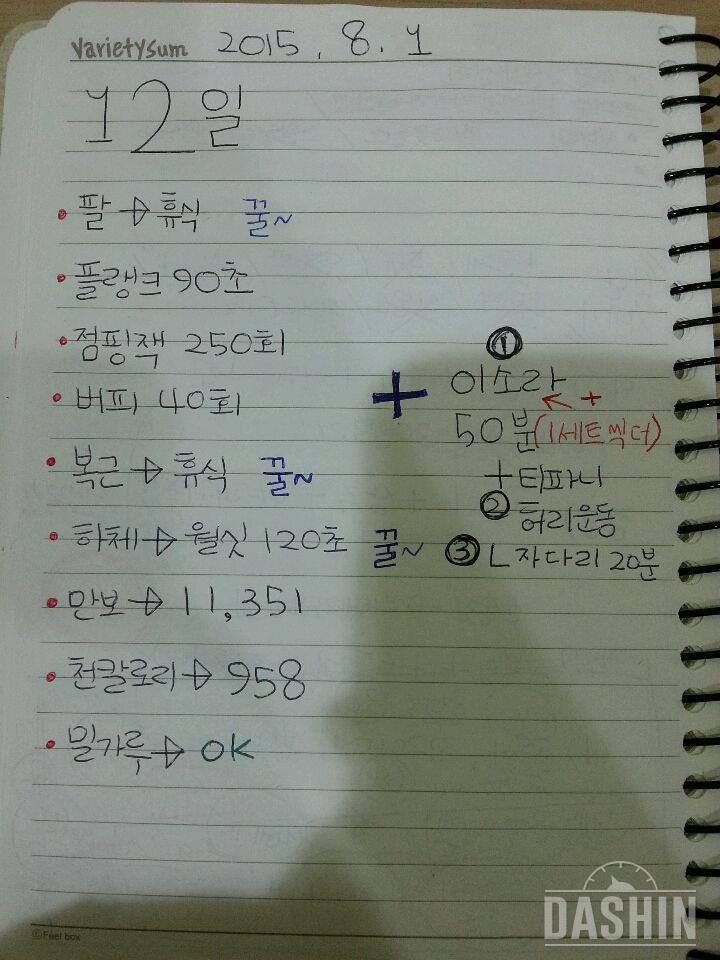 varietysum 2015. 8. 1
12일
• 팔 → 휴식 꿀~
• 플랭크 90초
• 점핑잭 250회
• 버피 40회
• 복근 → 휴식 꿀~
• 하체 → 월싯 120초 꿀~
• 만보 → 11,351
• 천칼로리 → 958
• 밀가루 → OK
+
①
이소라
← +
50분 (1세트씩더)
+ 티파니
② 허리운동
③ L자다리 20분
©Feel box
DASHIN